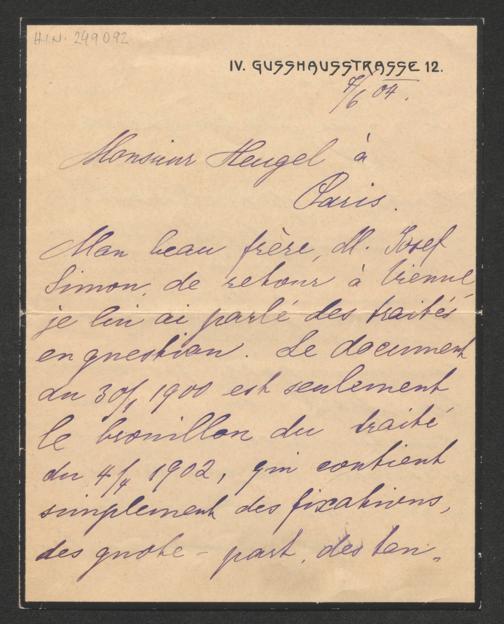 H.I.N. 249092
IV. GUSSHAUSSTRASSE 12.
4/6 04.
Monsieur Heugel à
Paris.
Mon beau frère, M. Josef
Simon, de retour à Vienne
je lui ai parlé des traités
en question. Le document
du 30/1 1900 est seulement
le brouillon du traité
du 4/4 1902, qui contient
simplement des fixations,
des quote-part, des tan-